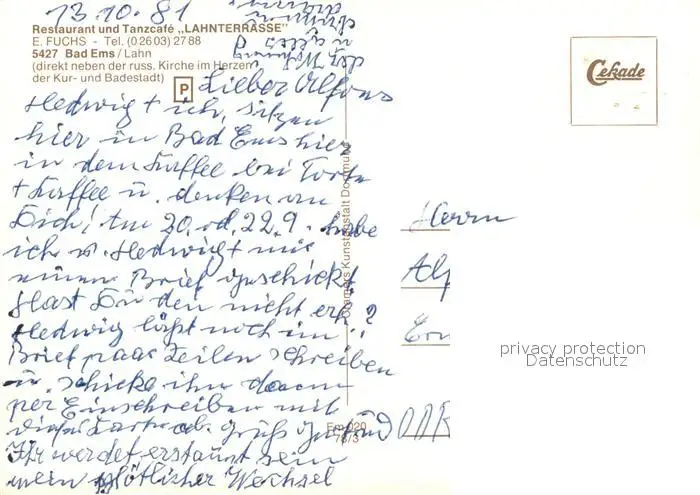 13.10.81
Restaurant und Tanzcafé „LAHNTERRASSE"
E. FUCHS - Tel. (0 26 03) 27 88
5427 Bad Ems / Lahn
(direkt neben der russ. Kirche im Herzen
der Kur- und Badestadt)
P
Cekade
Lieber Alfons
Hedwig + ich, sitzen
hier in Bad Ems hier
in dem Kaffee bei Torte
+ Kaffee u. denken an
Dich! Am 20. od. 22.9. habe
ich v. Hedwig mit
einen Brief geschickt.
Hast Du den nicht erh.?
Hedwig läßt noch im
Brief paar Zeilen schreiben
u. schicke ihn dann
per Einschreiben mit
dieser Karte ab. Gruß
Ihr werdet erstaunt sein
mein plötzlicher Wechsel
Herrn
Alf
DDR
Cramers Kunstanstalt Dortmund
Em 020
78/3
privacy protection
Datenschutz